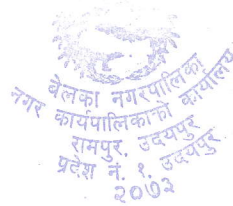 बेलका नगरपालिका
नगर कार्यपालिकाको कार्यालय
रामपुर, उदयपुर
प्रदेश नं. १, उदयपुर
२०७३